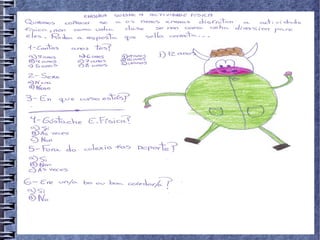 ENQUISA SOBRE A ACTIVIDADE FÍSICA
Queremos coñecer se a os nenos e nenas disfrutan a actividade
física, non como unha clase se non como unha diversión para
eles. Rodea a resposta que sexa correcta...
1-Cantos anos tes?
a) 3 anos
b) 4 anos
c) 5 anos
d) 6 anos
e) 7 anos
f) 8 anos
g) 9 anos
h) 10 anos
i) 11 anos
j) 12 anos
2-Sexo
a) Nena
b) Neno
3-En que curso estás?
4-Góstache E.Física?
a) Si
b) Ás veces
c) Non
5-Fora do colexio fas deporte?
a) Si
b) Non
c) Ás veces
6-Ere un/a bo ou boa corredor/a?
a) Si
b) No